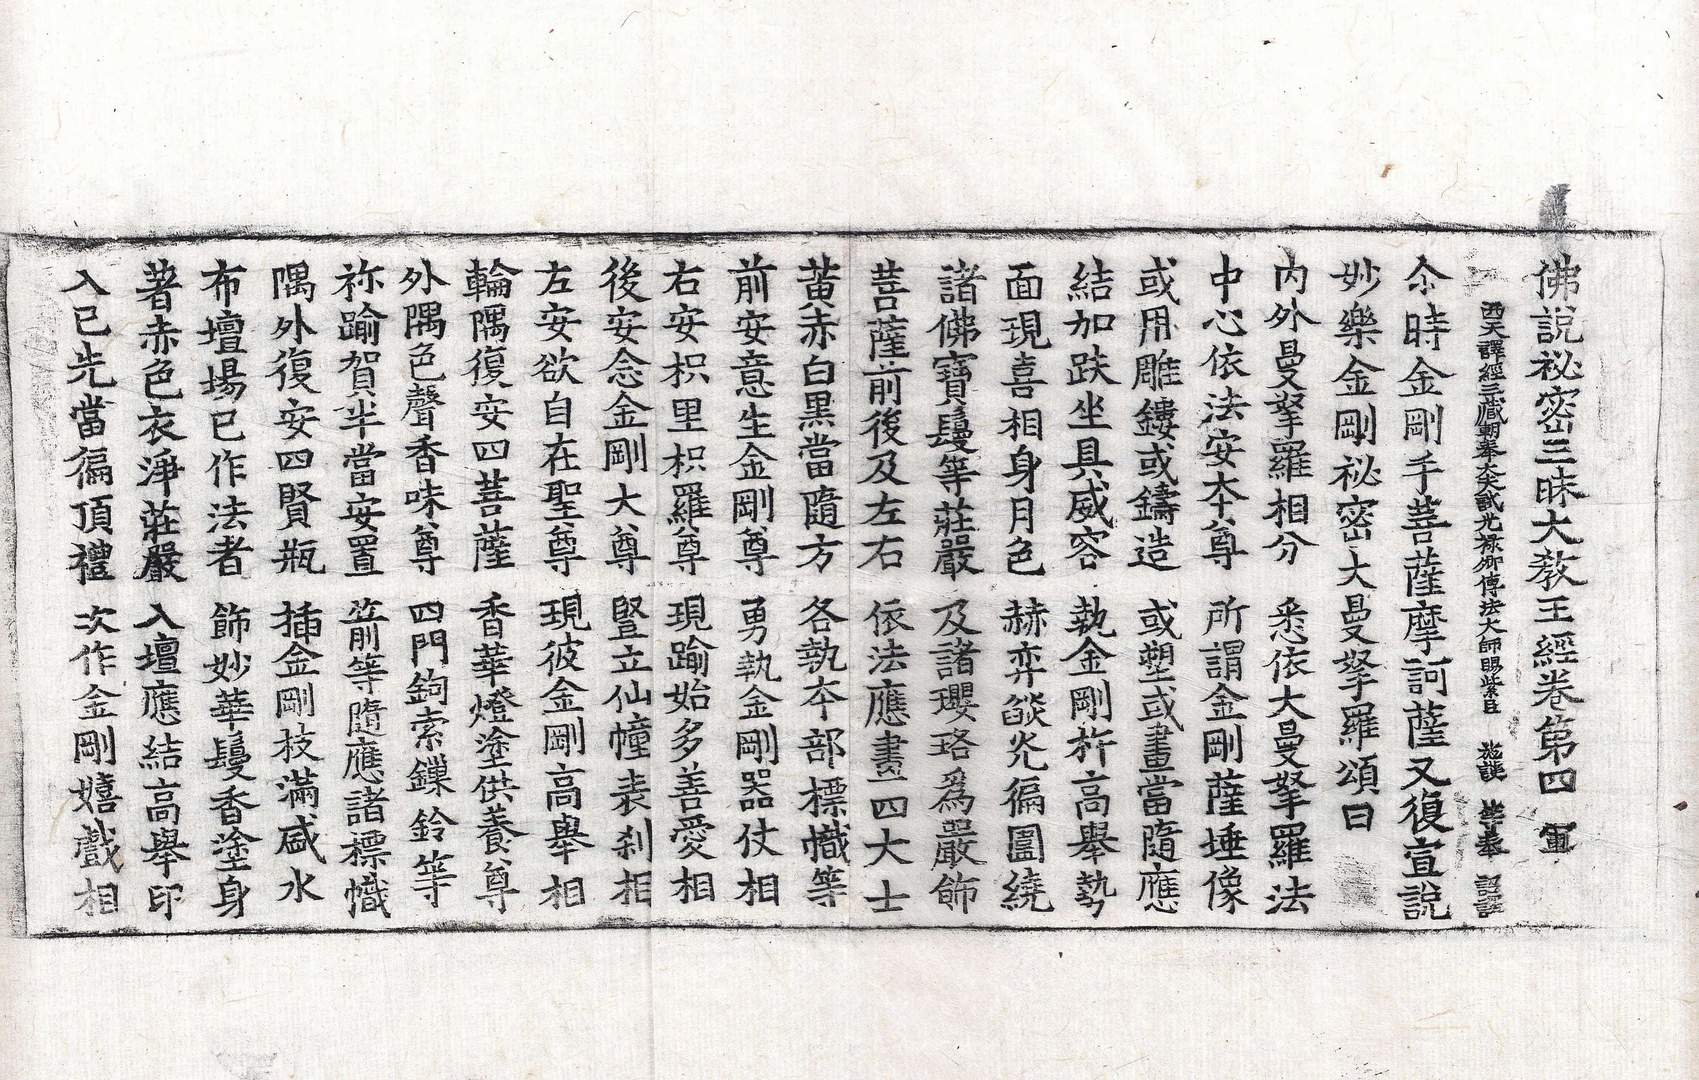 佛說祕密三昧大教王經卷第四　軍
西天譯經三藏朝奉大夫試光祿卿傳法大師賜紫臣　施護　等奉　詔譯
尒時金剛手菩薩摩訶薩又復宣說
妙樂金剛祕密大曼拏羅頌曰
內外曼拏羅相分　悉依大曼拏羅法
中心依法安本尊　所謂金剛薩埵像
或用雕鏤或鑄造　或塑或畫當隨應
結加趺坐具威容　執金剛杵高舉勢
面現喜相身月色　赫弈燄光徧圍繞
諸佛寶鬘等莊嚴　及諸瓔珞爲嚴飾
菩薩前後及左右　依法應畫四大士
黃赤白黑當隨方　各執本部標幟等
前安意生金剛尊　勇執金剛器仗相
右安枳里枳羅尊　現踰始多善愛相
後安念金剛大尊　豎立仙幢表剎相
左安欲自在聖尊　現彼金剛高舉相
輪隅復安四菩薩　香華燈塗供養尊
外隅色聲香味尊　四門鉤索鏁鈴等
祢踰賀半當安置　箭等隨應諸標幟
隅外復安四賢瓶　插金剛枝滿盛水
布壇場已作法者　飾妙華鬘香塗身
著赤色衣淨莊嚴　入壇應結高舉印
入已先當徧頂禮　次作金剛嬉戲相